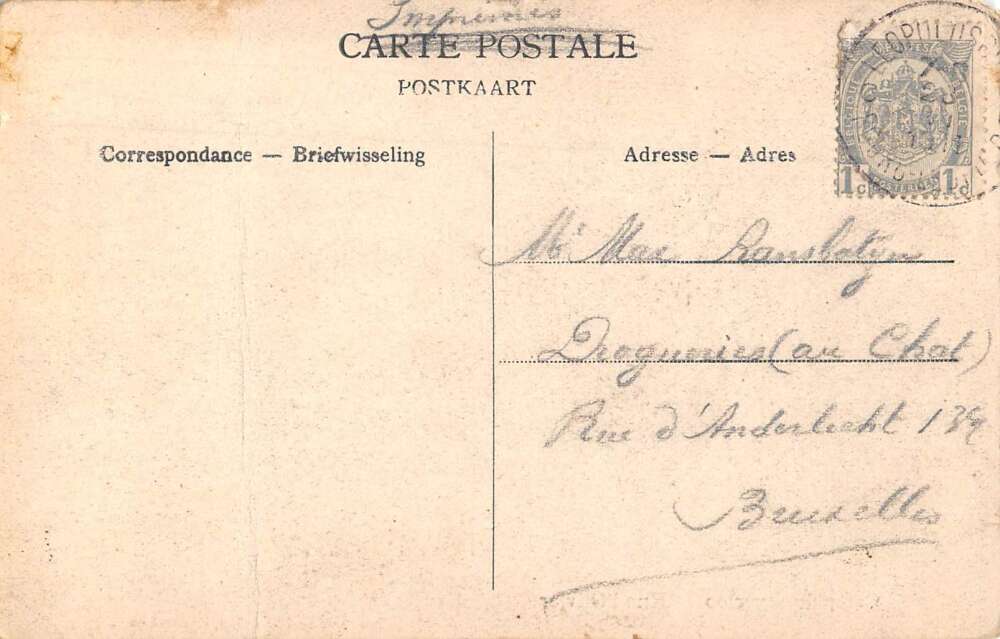 Imprimés
CARTE POSTALE
POSTKAART
Correspondance — Briefwisseling
Adresse — Adres
BELGIQUE BELGIË
1c 1c
Mr Max Ransbotyn
Drogueries (au Chat)
Rue d'Anderlecht 139
Bruxelles